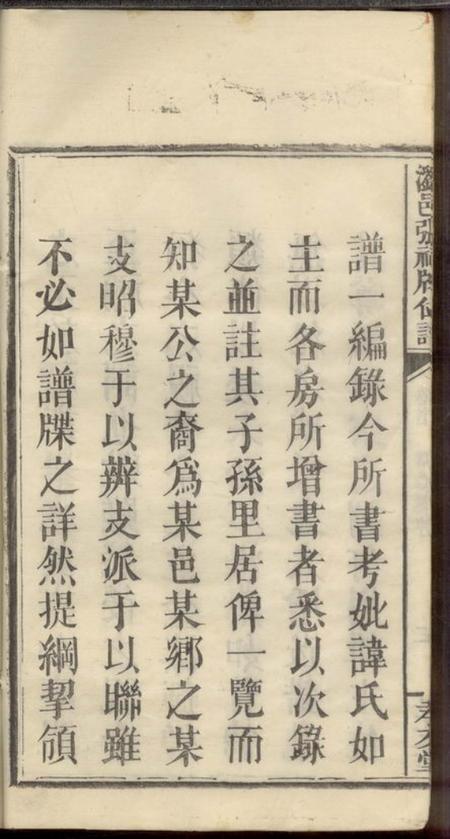 邑張祠牌位譜
譜一編錄今所書考妣諱氏如
主而各房所增書者悉以次錄
之並註其子孫里居俾一覽而
知某公之裔爲某邑某鄉之某
支昭穆于以辨支派于以聯雖
不必如譜牒之詳然提綱挈領
孝友堂